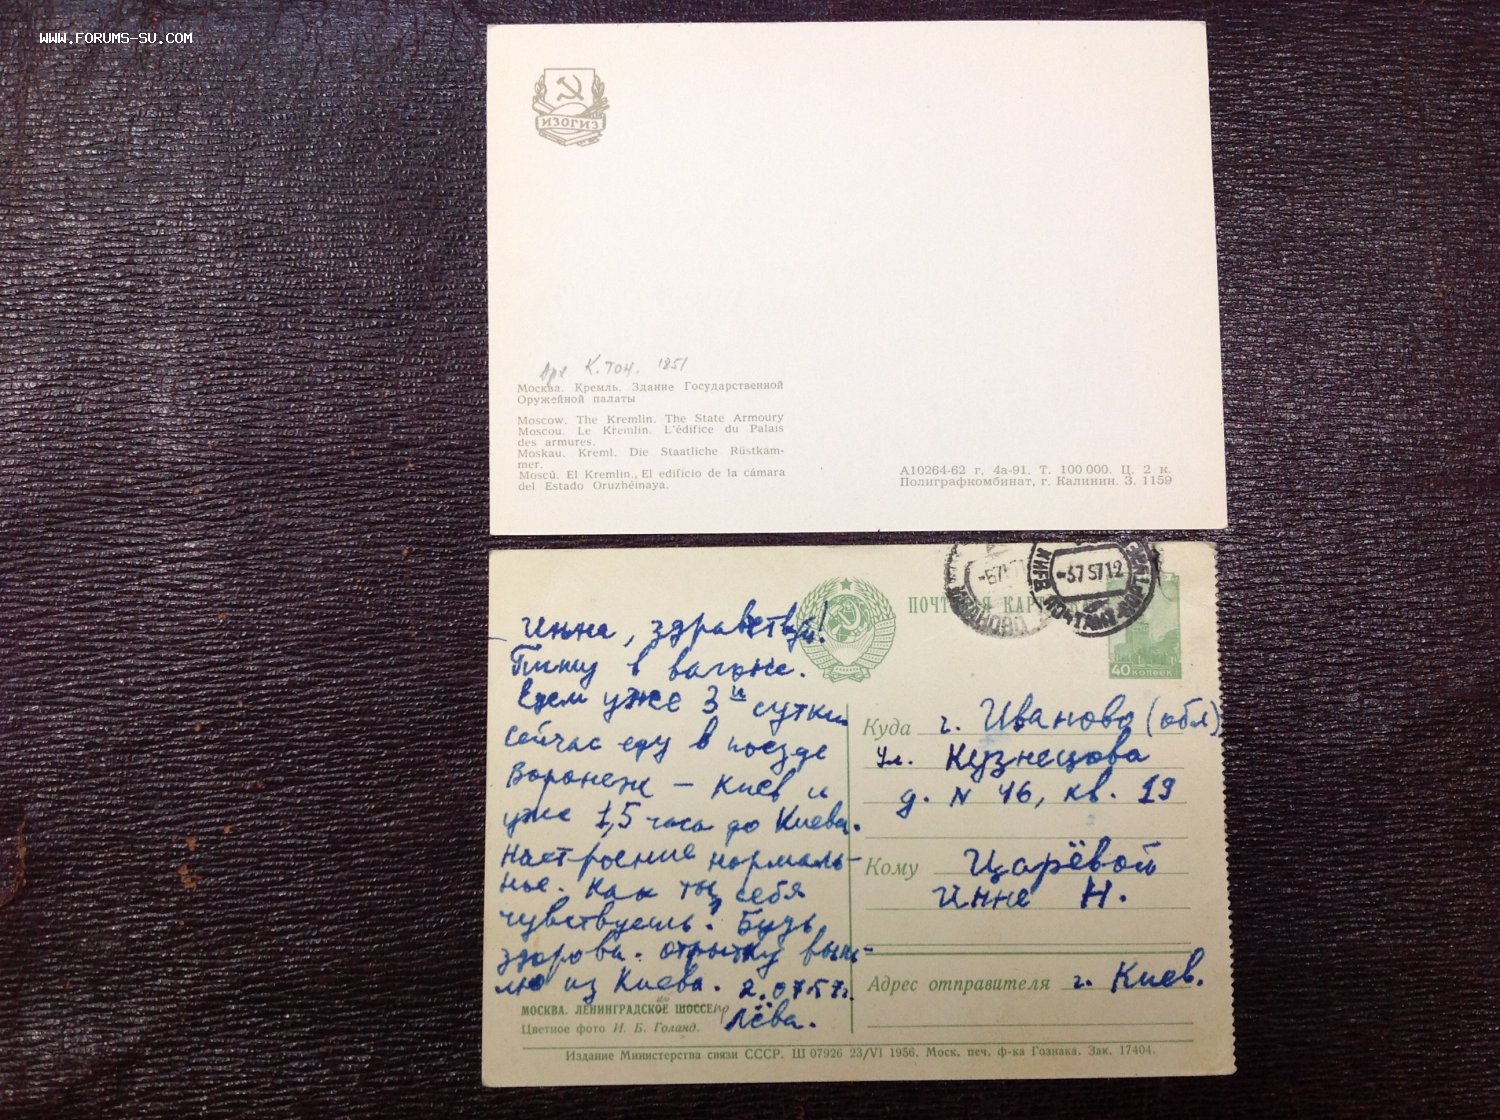 WWW.FORUMS-SU.COM
ИЗОГИЗ
арх К. Тон. 1851
Москва. Кремль. Здание Государственной
Оружейной палаты
Moscow. The Kremlin. The State Armoury
Moscou. Le Kremlin. L'édifice du Palais
des armures.
Moskau. Kreml. Die Staatliche Rüstkam-
mer.
Moscú. El Kremlin., El edificio de la cámara
del Estado Oruzhéinaya.
А10264-62 г. 4а-91. Т. 100 000. Ц. 2 к.
Полиграфкомбинат, г. Калинин. З. 1159
Инна, здравствуй!
Пишу в вагоне.
Едем уже 3й сутки
сейчас еду в поезде
Воронеж – Киев и
уже 1,5 часа до Киева.
Настроение нормаль-
ное. Как ты себя
чувствуешь? Будь
здорова. открытку выш-
лю из Киева. 2.07.57г.
Лёва.
МОСКВА. ЛЕНИНГРАДСКОЕ ШОССЕ
Цветное фото И. Б. Голанд.
ПОЧТОВАЯ КАРТОЧКА
ИВАНОВО
КИЕВ ПОЧТАМТ
-375712
40 КОПЕЕК
Куда г. Иваново (обл)
ул. Кузнецова
д. N 46, кв. 19
Кому Царёвой
Инне Н.
Адрес отправителя г. Киев.
Издание Министерства связи СССР. Ш 07926 23/VI 1956. Моск. печ. ф-ка Гознака. Зак. 17404.